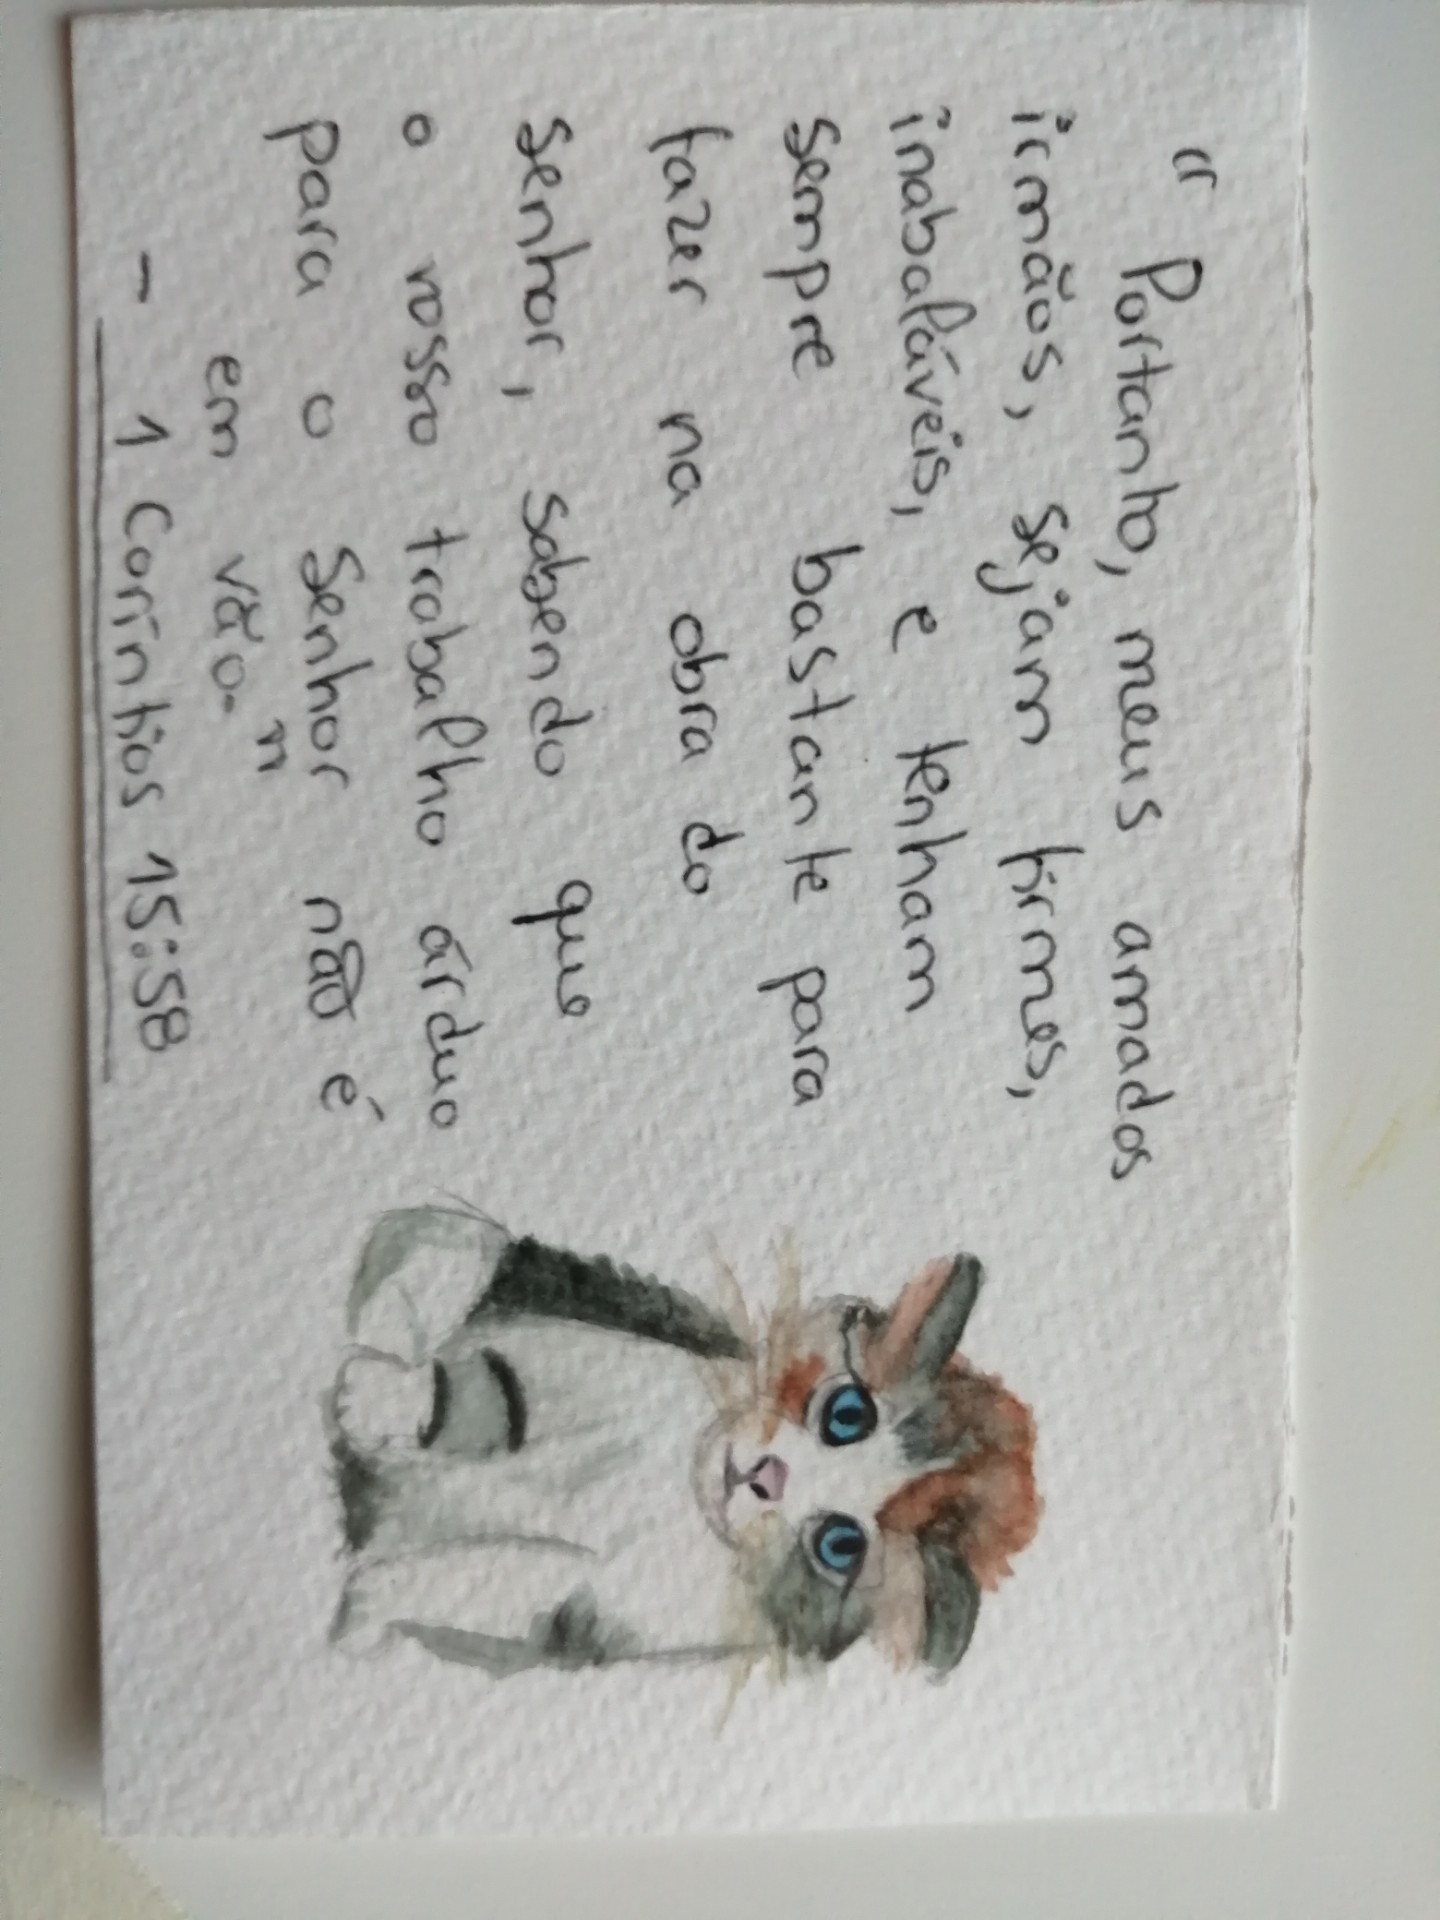 “ Portanto, meus amados
irmãos, sejam firmes,
inabaláveis, e tenham
sempre bastante para
fazer na obra do
Senhor, sabendo que
o vosso trabalho árduo
para o Senhor não é
em vão. "
- 1 Coríntios 15:58